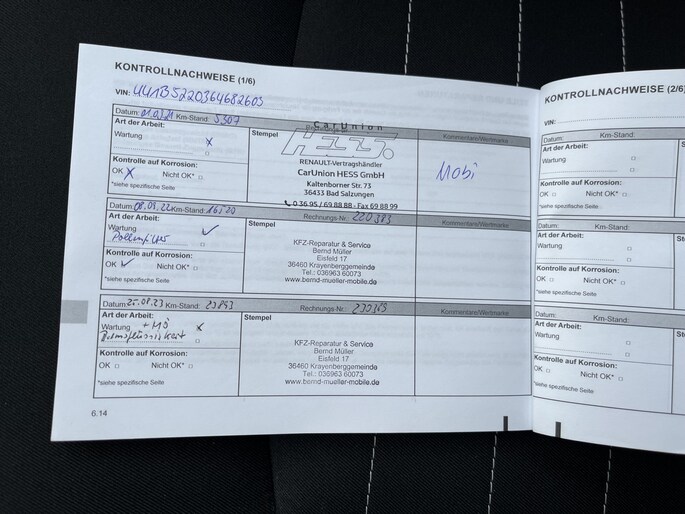 KONTROLLNACHWEISE (1/6)
VIN: UU1B5220364682603
Datum: 01.07.21 Km-Stand: 5307
Art der Arbeit:
Wartung x
Kontrolle auf Korrosion:
OK X Nicht OK* □
*siehe spezifische Seite
Stempel
CarUnion
RENAULT-Vertragshändler
CarUnion HESS GmbH
Kaltenborner Str. 73
36433 Bad Salzungen
0 36 95 / 69 88 88 - Fax 69 88 99
Kommentare/Wertmarke
Mobi
Datum: 08.09.22 Km-Stand: 16520
Rechnungs-Nr.: 220383
Kommentare/Wertmarke
Art der Arbeit:
Wartung ✓
Pollenfilter □
Kontrolle auf Korrosion:
OK ✓ Nicht OK* □
*siehe spezifische Seite
Stempel
KFZ-Reparatur & Service
Bernd Müller
Eisfeld 17
36460 Krayenberggemeinde
Tel.: 036963 60073
www.bernd-mueller-mobile.de
Datum: 25.08.23 Km-Stand: 23853
Rechnungs-Nr.: 230389
Kommentare/Wertmarke
Art der Arbeit:
Wartung + MÖ x
Bremsflüssigkeit □
Kontrolle auf Korrosion:
OK □ Nicht OK* □
*siehe spezifische Seite
Stempel
KFZ-Reparatur & Service
Bernd Müller
Eisfeld 17
36460 Krayenberggemeinde
Tel.: 036963 60073
www.bernd-mueller-mobile.de
6.14
KONTROLLNACHWEISE (2/6)
VIN:
Datum: Km-Stand:
Art der Arbeit:
Wartung □
Kontrolle auf Korrosion:
OK □ Nicht OK* □
*siehe spezifische Seite
Datum: Km-Stand:
Art der Arbeit:
Wartung □
Kontrolle auf Korrosion:
OK □ Nicht OK* □
*siehe spezifische Seite
Datum: Km-Stand:
Art der Arbeit:
Wartung □
Kontrolle auf Korrosion:
OK □ Nicht OK* □
*siehe spezifische Seite